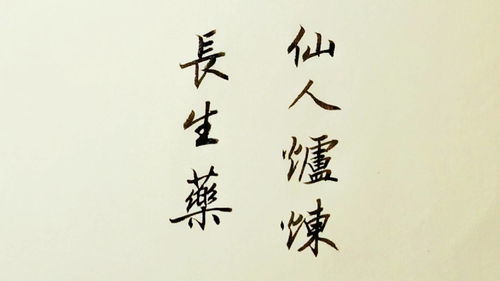 仙人爐煉
長生藥